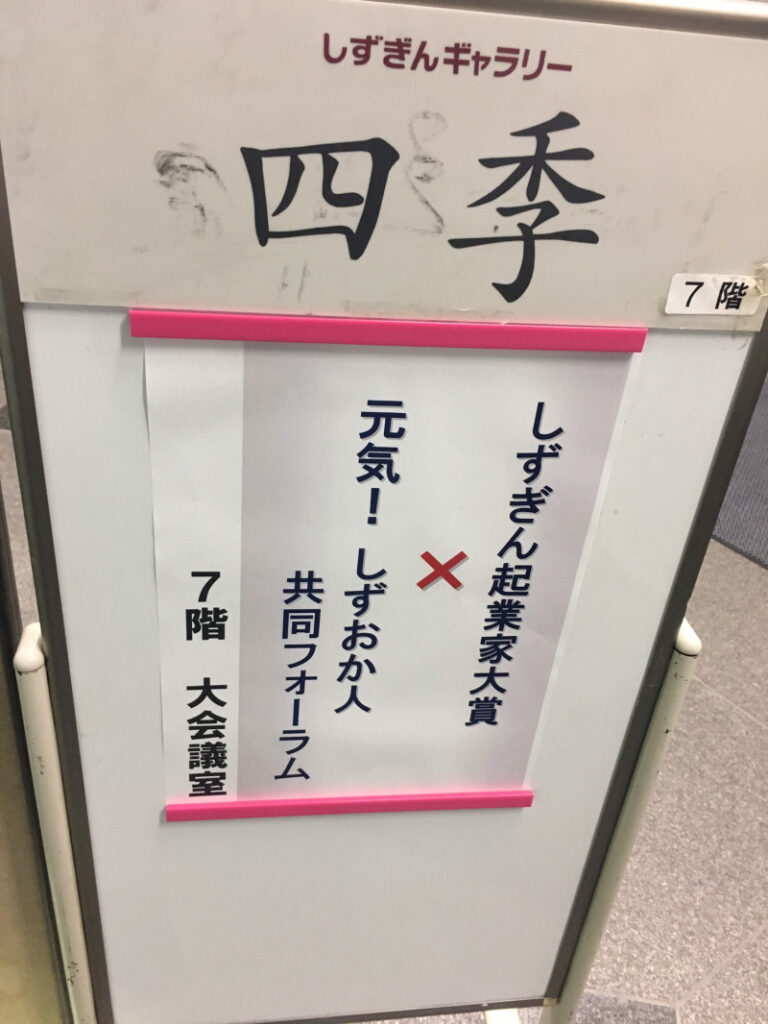 しずぎんギャラリー
四季
7階
しずぎん起業家大賞
×
元気！しずおか人
共同フォーラム
7階 大会議室